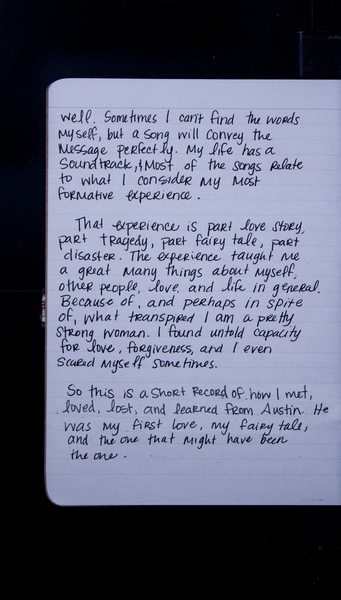 well. Sometimes I can't find the words
myself, but a song will convey the
message perfectly. My life has a
soundtrack, & most of the songs relate
to what I consider my most
formative experience.
That experience is part love story,
part tragedy, part fairy tale, part
disaster. The experience taught me
a great many things about myself,
other people, love, and life in general.
Because of, and perhaps in spite
of, what transpired I am a pretty
strong woman. I found untold capacity
for love, forgiveness, and I even
scared myself sometimes.
So this is a short record of how I met,
loved, lost, and learned from Austin. He
was my first love, my fairy tale,
and the one that might have been
the one.